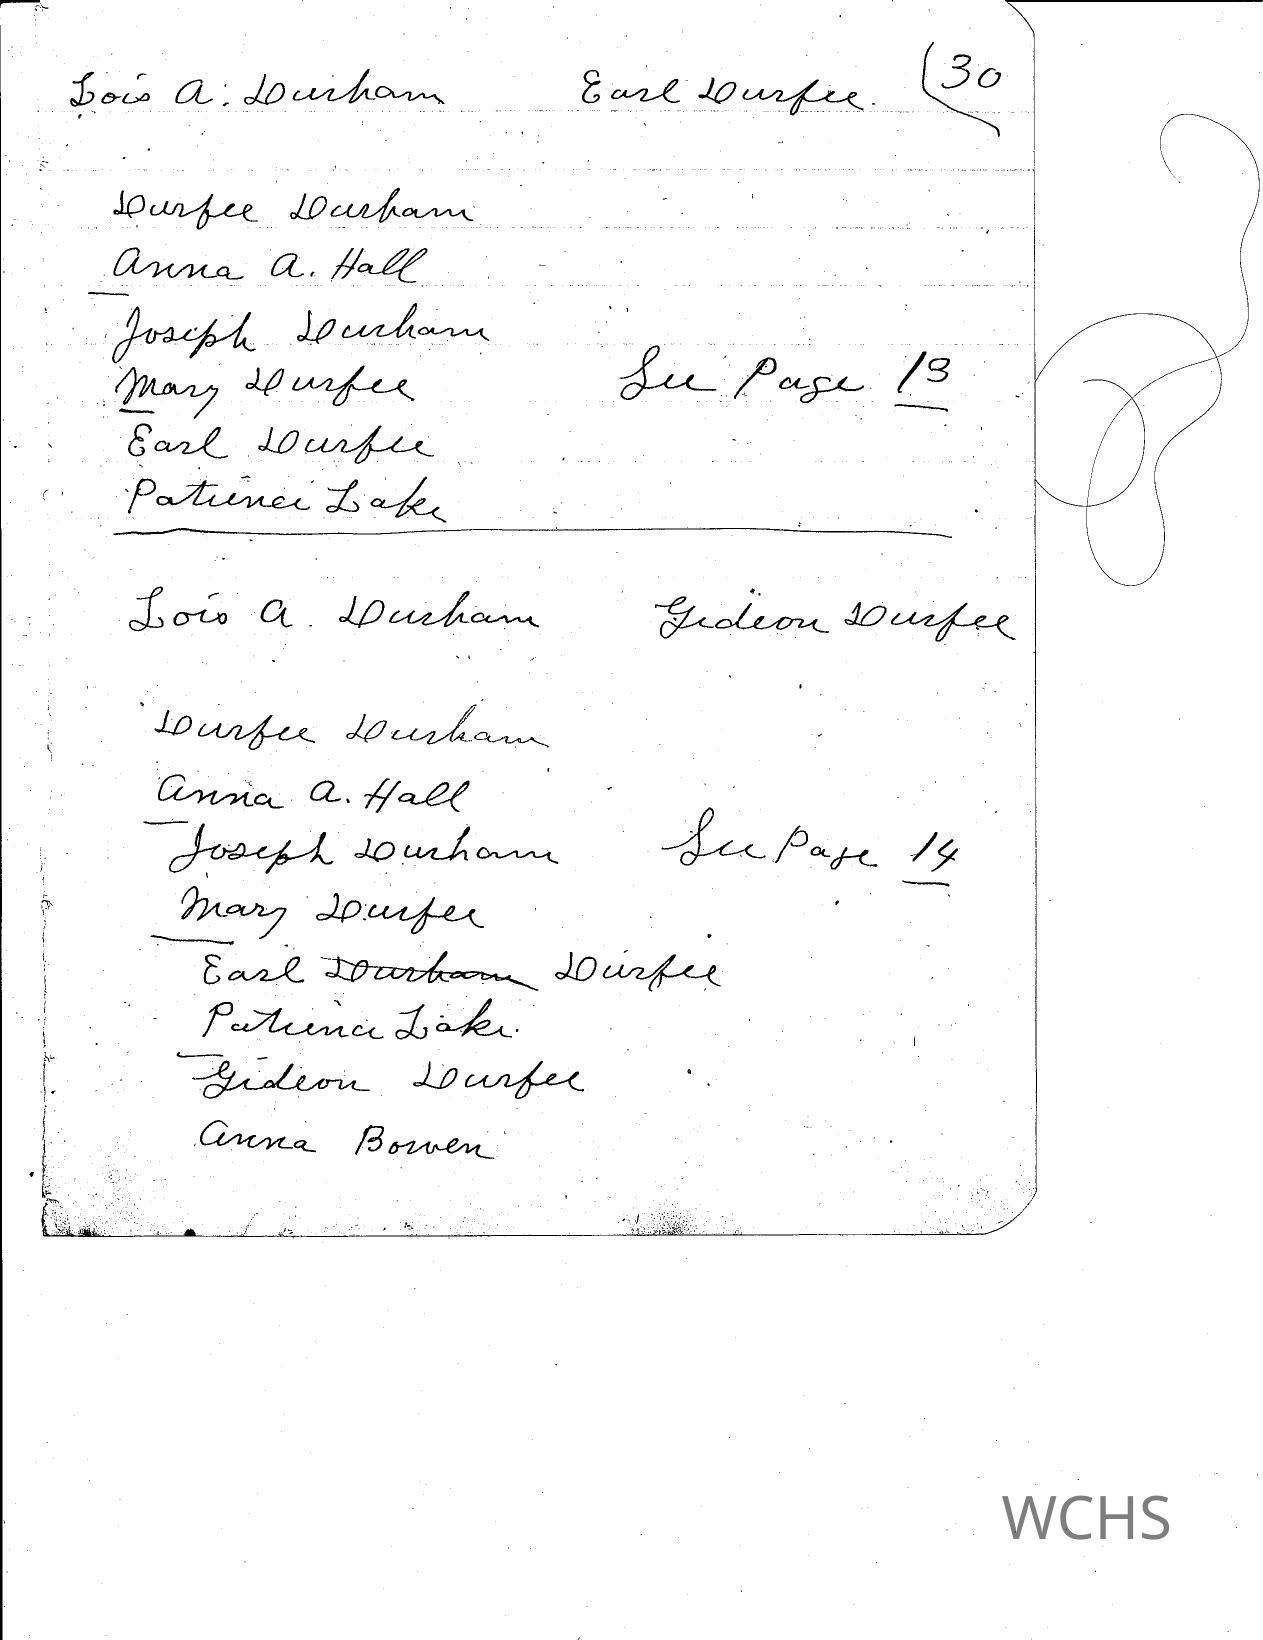 Lois A. Durham Earl Durfee. 30
Durfee Durham
Anna A. Hall
Joseph Durham
Mary Durfee See Page 13
Earl Durfee
Patience Lake
Lois A. Durham Gideon Durfee
Durfee Durham
Anna A. Hall
Joseph Durham See Page 14
Mary Durfee
Earl Durham Durfee
Patience Lake
Gideon Durfee
Anna Bowen
WCHS